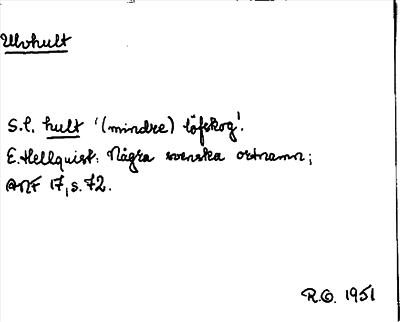 Ulvhult
S.l. hult '(mindre) löfskog'.
E. Hellquist: Några svenska ortnamn;
ANF 17, s. 72.
R.O. 1951